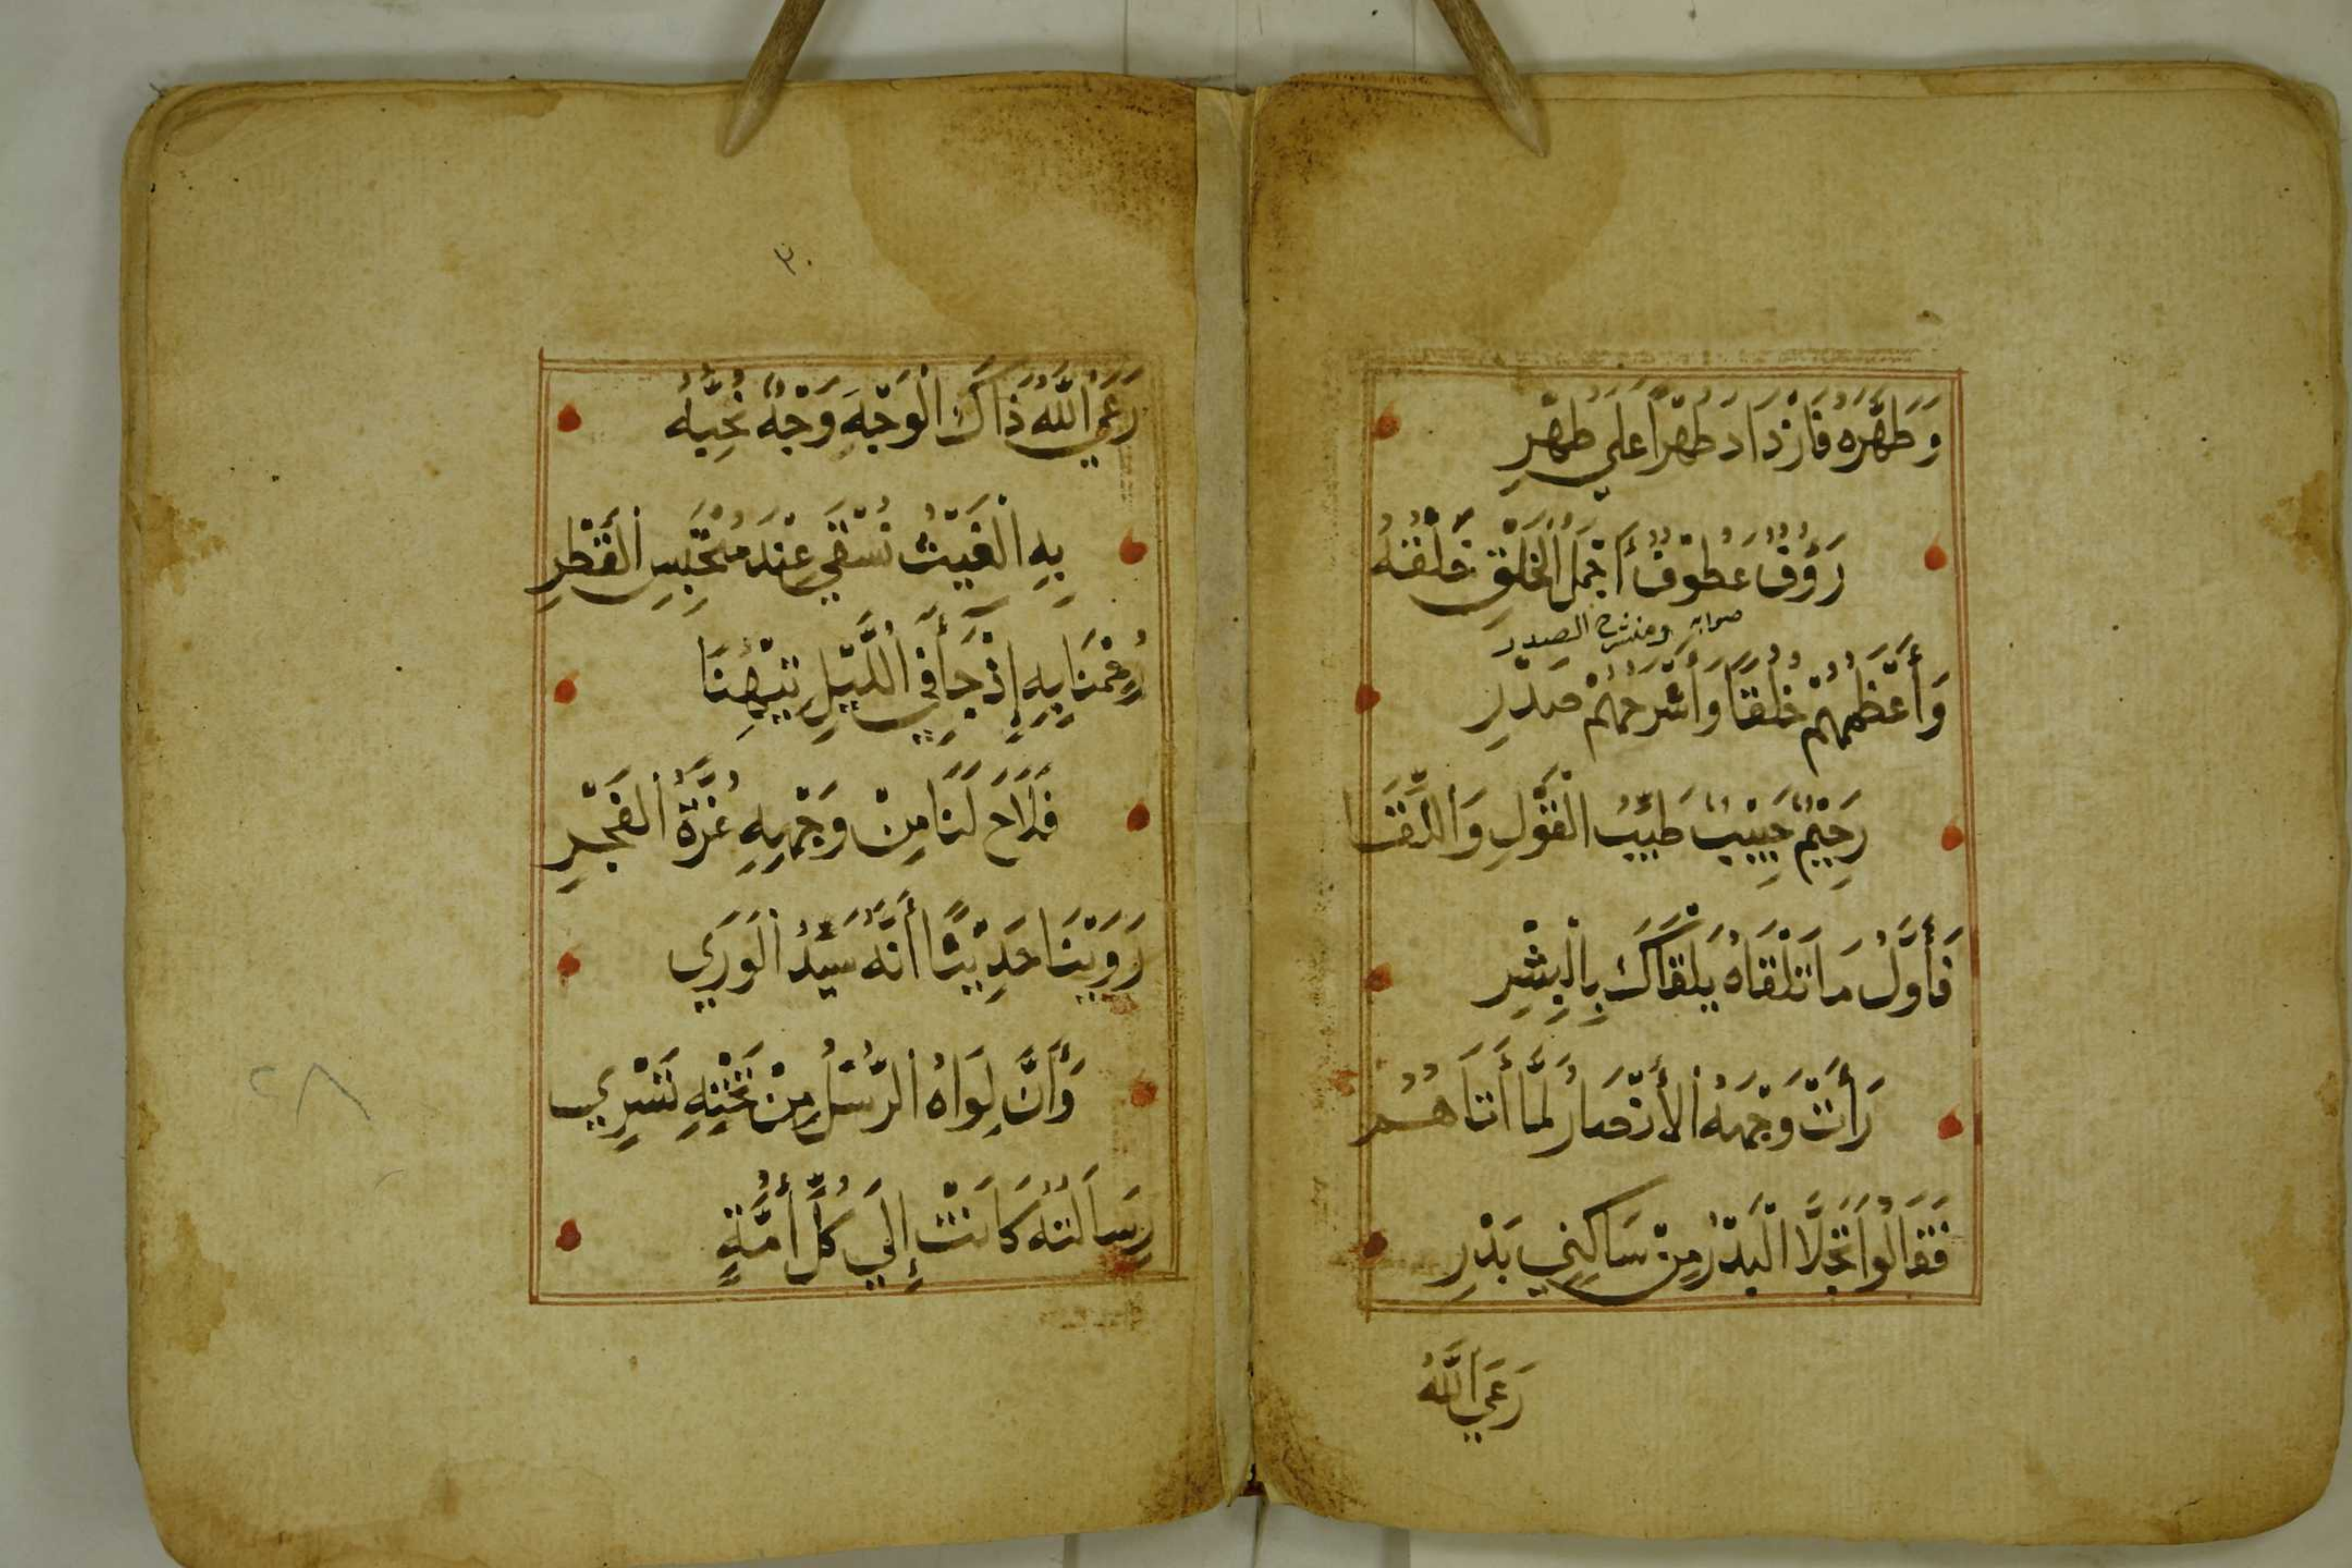 وَطَهَّرَهُ فَازْدَادَ طُهْرًا عَلَي طُهْرِ
رَؤُفٌ عَطُوْفٌ أَجْمَلُ الْخَلْقِ خَلْقُهُ
صوابه ومنشرح الصدر
وَأَعْظَمُهُمْ خُلُقًا وَأَشْرَحُهُمْ صَدْرِ
رَحِيْمٌ حَبِيْبٌ طَيِّبُ الْقَوْلِ وَاللِّقَا
فَأَوَّلُ مَا تَلْقَاهُ يَلْقَاكَ بِالْبِشْرِ
رَأَتْ وَجْهَهُ الأَنْصَارُ لَمَّا أَتَاهُمُ
فَقَالُوا تَجَلَّا الْبَدْرُ مِنْ سَاكِنِي بَدْرِ
رَعَي اللَّهُ
٣٠
رَعَي اللَّهُ ذَاكَ الْوَجْهَ وَجْهٌ نُحِبُّهُ
بِهِ الْغَيْثُ نُسْقَي عِنْدَ مُحْتَبَسِ الْقَطْرِ
رُحِمْنَا بِهِ إِذْ جَا فِي اللَّيْلِ نَبِيُّنَا
فَلَاحَ لَنَا مِنْ وَجْهِهِ غُرَّةُ الْفَجْرِ
رَوَيْنَا حَدِيْثًا أَنَّهُ سَيِّدُ الْوَرَي
وَأَنَّ لِوَاهُ الرُّسْلُ مِنْ تَحْتِهِ تَسْرِي
رِسَالَتُهُ كَانَتْ إِلَي كُلِّ أُمَّةٍ
٢٨